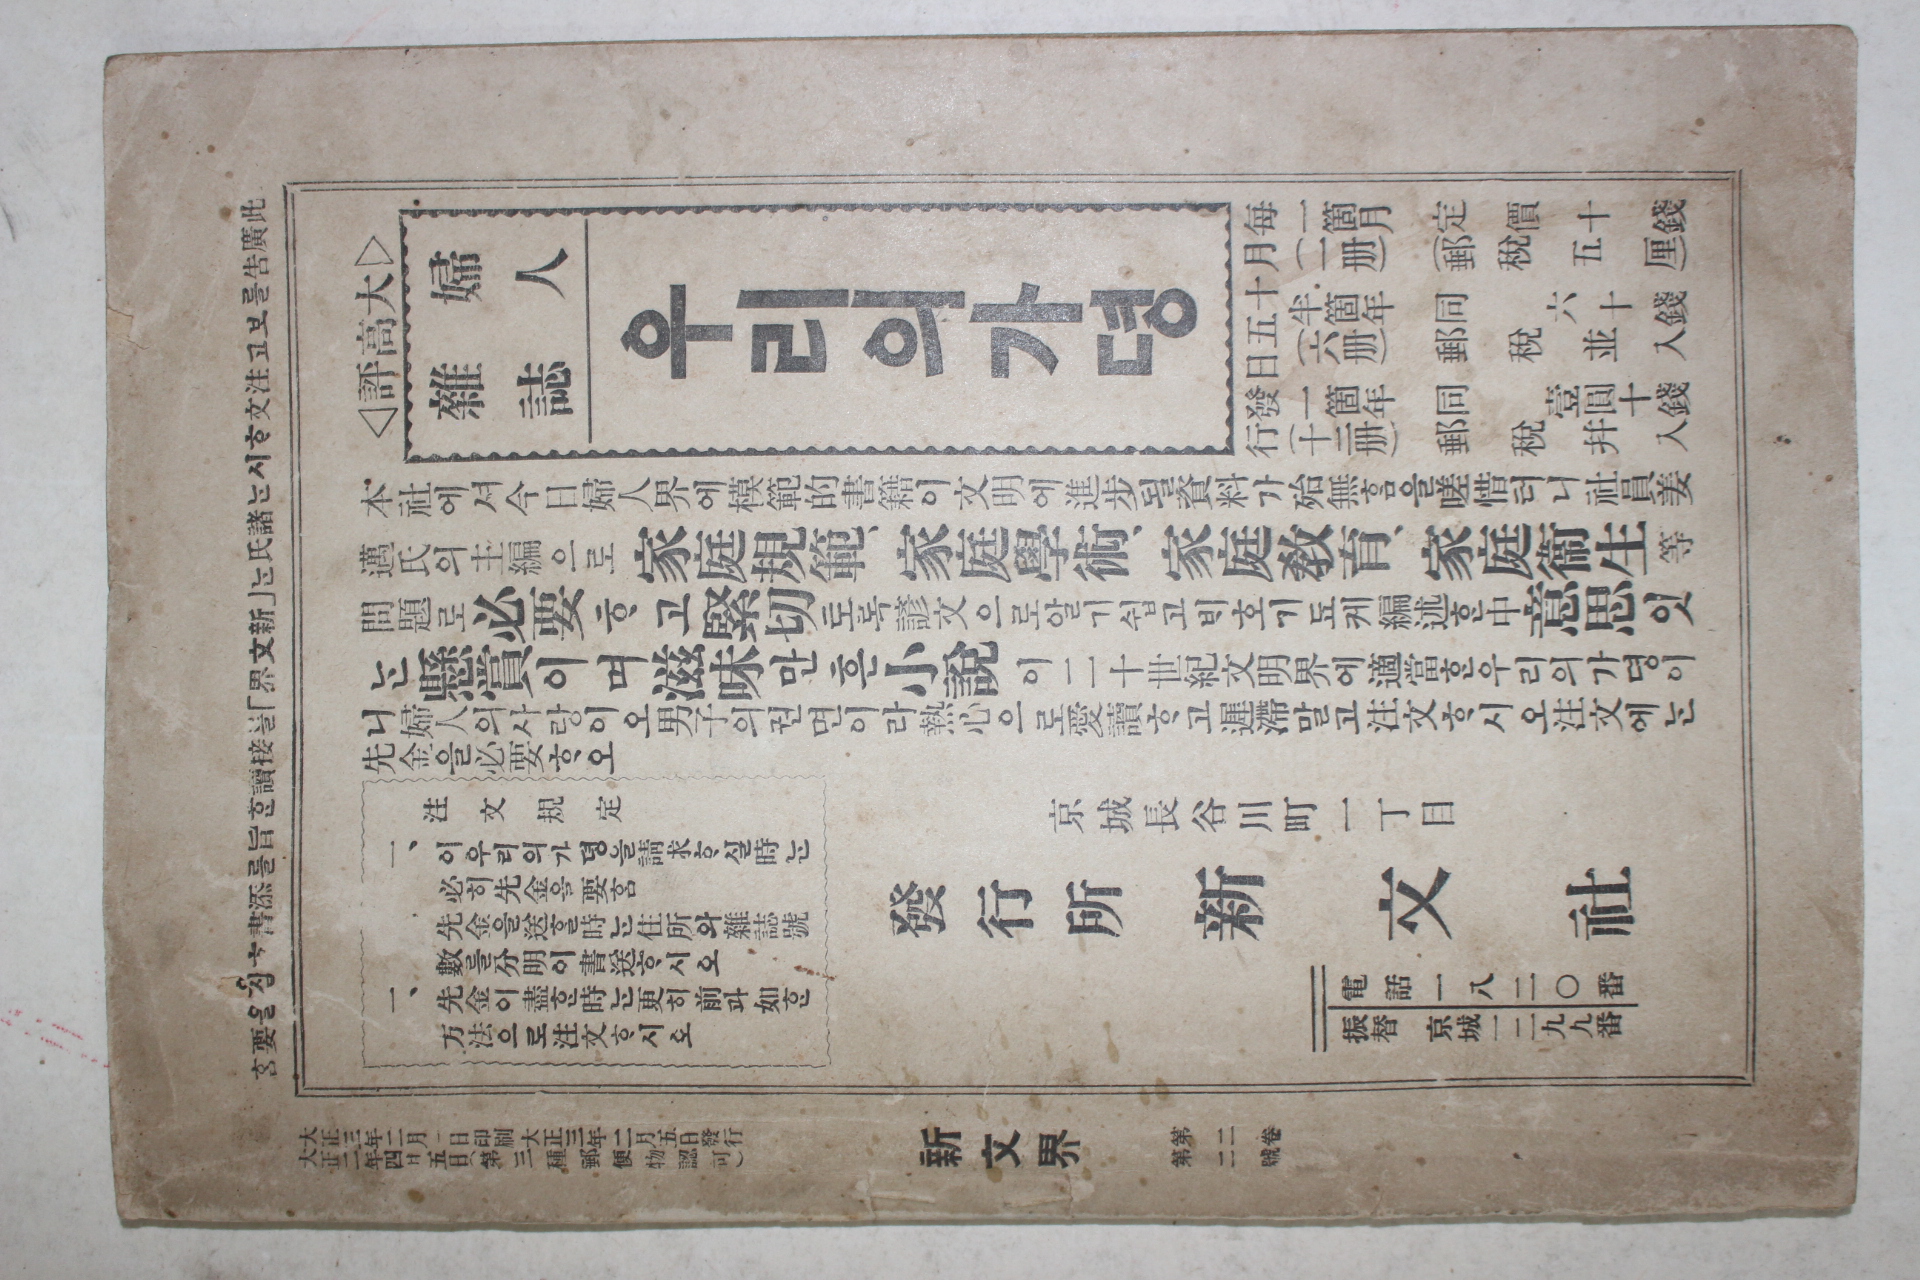 此廣告를보고注文ᄒᆞ시ᄂᆞᆫ諸氏ᄂᆞᆫ「新文界」를接讀ᄒᆞᆫ旨를添書ᄒᆞ심을要ᄒᆞᆷ
◁大高評▷
婦人
雜誌
우리의가뎡
每月十五日發行
一箇月 定價十錢
(一册) (郵稅五厘)
半箇年 同 六十錢
(六册) 郵稅並入
一箇年 同 壹圓十錢
(十二册) 郵稅幷入
本社에셔今日婦人界에模範的書籍이文明에進步될資料가殆無ᄒᆞᆷ을嗟惜터니社員姜
邁氏의主編으로家庭規範、家庭學術、家庭敎育、家庭衞生等
問題로必要ᄒᆞ고緊切토록諺文으로알기쉽고ᄇᆡ호기됴케編述ᄒᆞᆫ中意思잇
ᄂᆞᆫ懸賞이며滋味만흔小說이二十世紀文明界에適當ᄒᆞᆫ우리의가뎡이
니婦人의사랑이오男子의권면이라熱心으로愛讀ᄒᆞ고遲滯말고注文ᄒᆞ시오注文에ᄂᆞᆫ
先金을必要ᄒᆞ오
注文規定
一、이우리의가뎡을請求ᄒᆞ실時ᄂᆞᆫ
必히先金을要ᄒᆞᆷ
先金을送ᄒᆞᆯ時ᄂᆞᆫ住所와雜誌號
數를分明이書送ᄒᆞ시오
一、先金이盡ᄒᆞᆫ時ᄂᆞᆫ更히前과如ᄒᆞᆫ
方法으로注文ᄒᆞ시오
京城長谷川町一丁目
發行所 新文社
電話一八二〇番
振替 京城一二九九番
大正三年二月一日印刷 大正三年二月五日發行
大正二年四月五日第三種郵便物認可)
新文界
第二卷
第二號